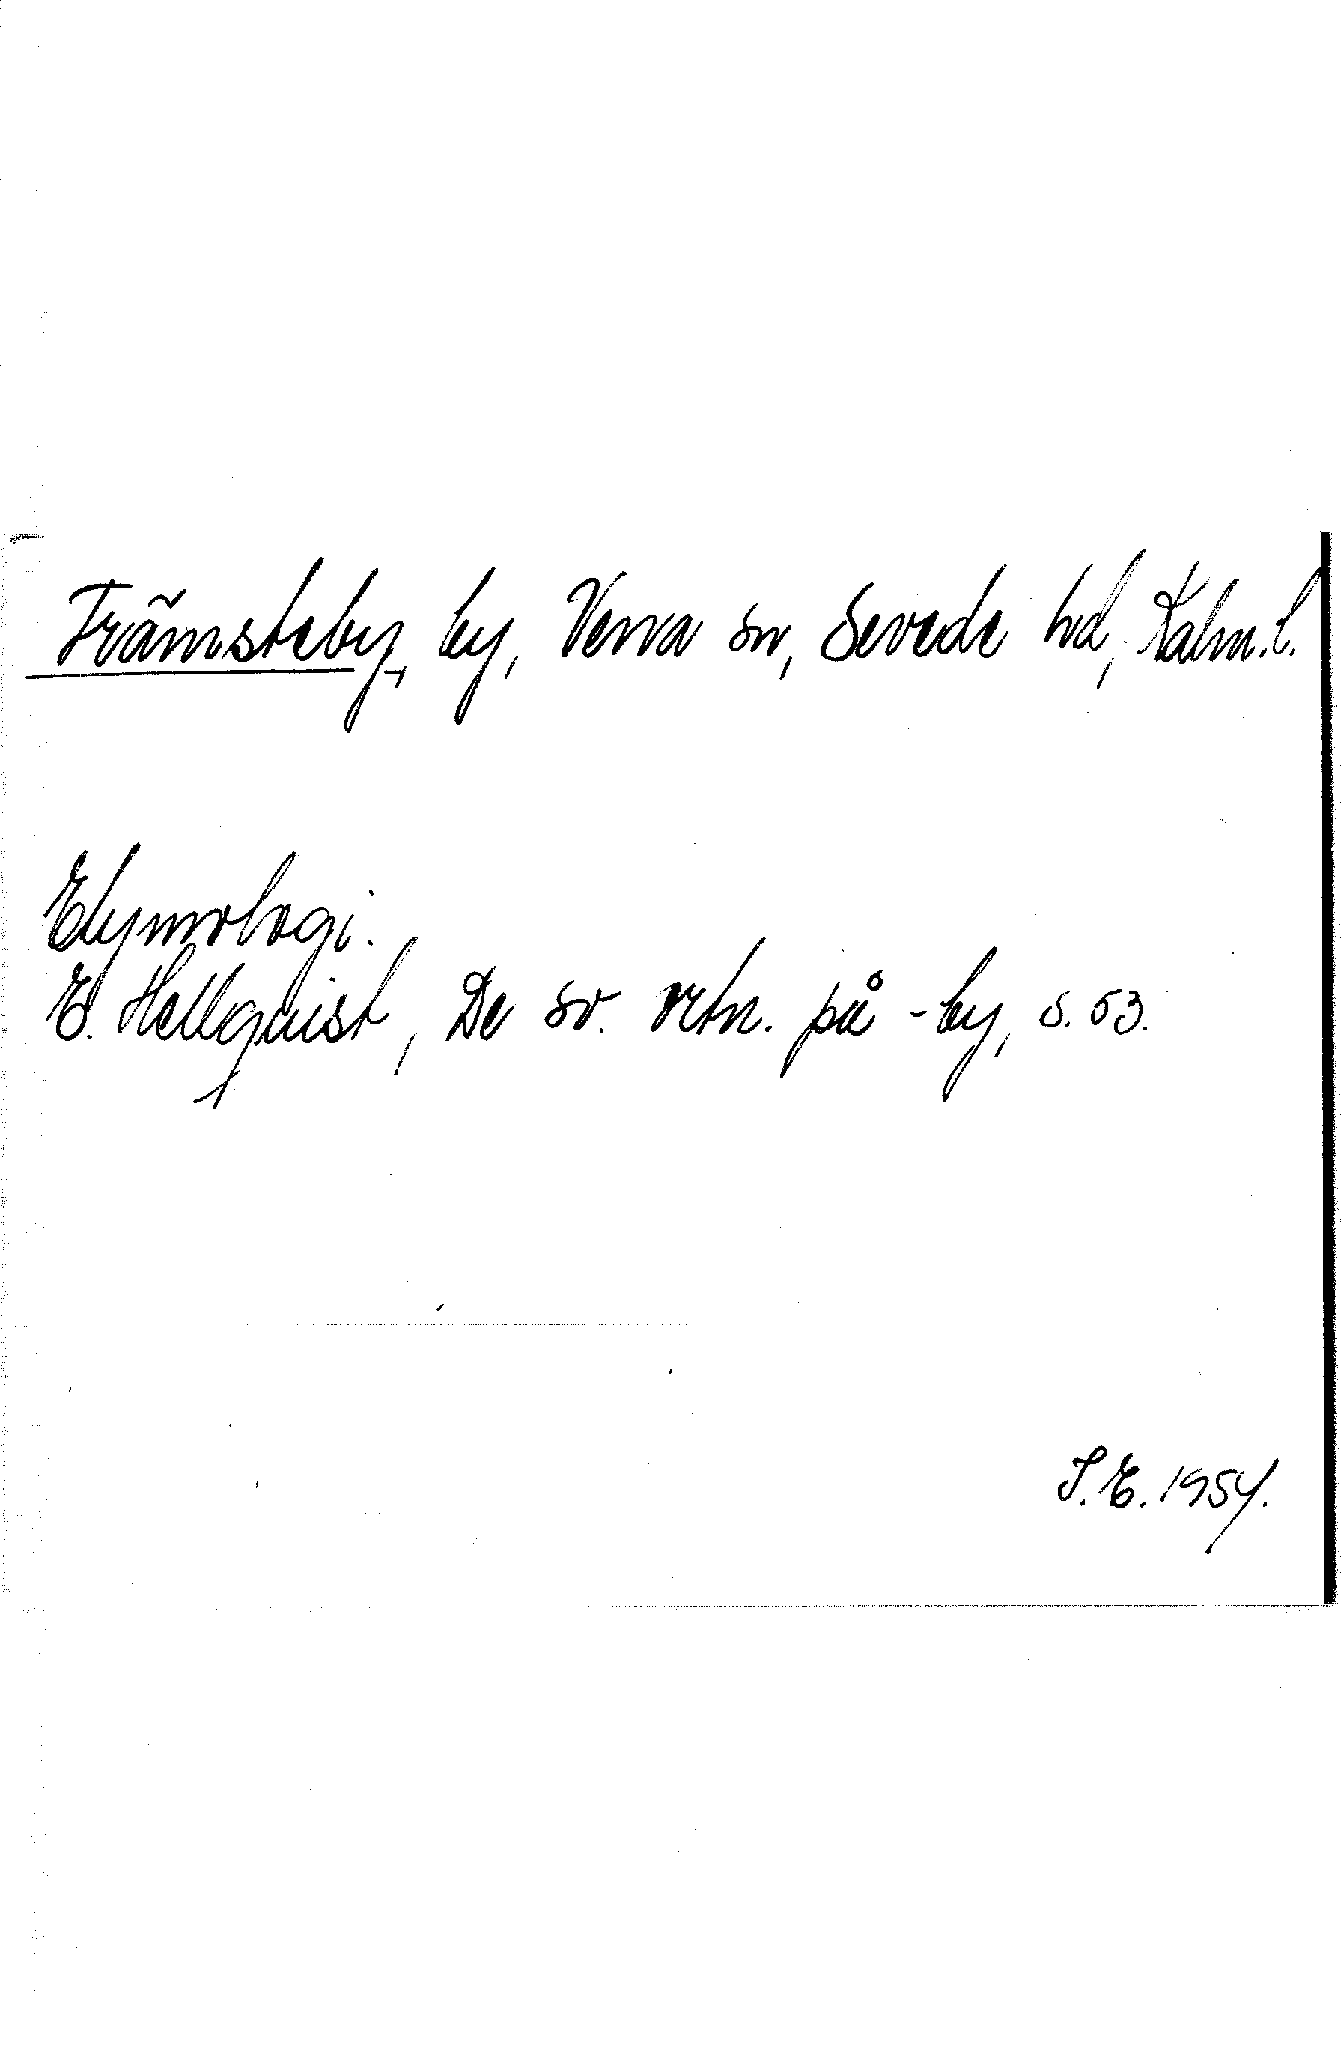 Främsteby, by, Vena sn, Sevede hd, Kalm.l.
Etymologi.
E. Hellquist, De sv. ortn. på -by, s. 53.
S.E. 1954.